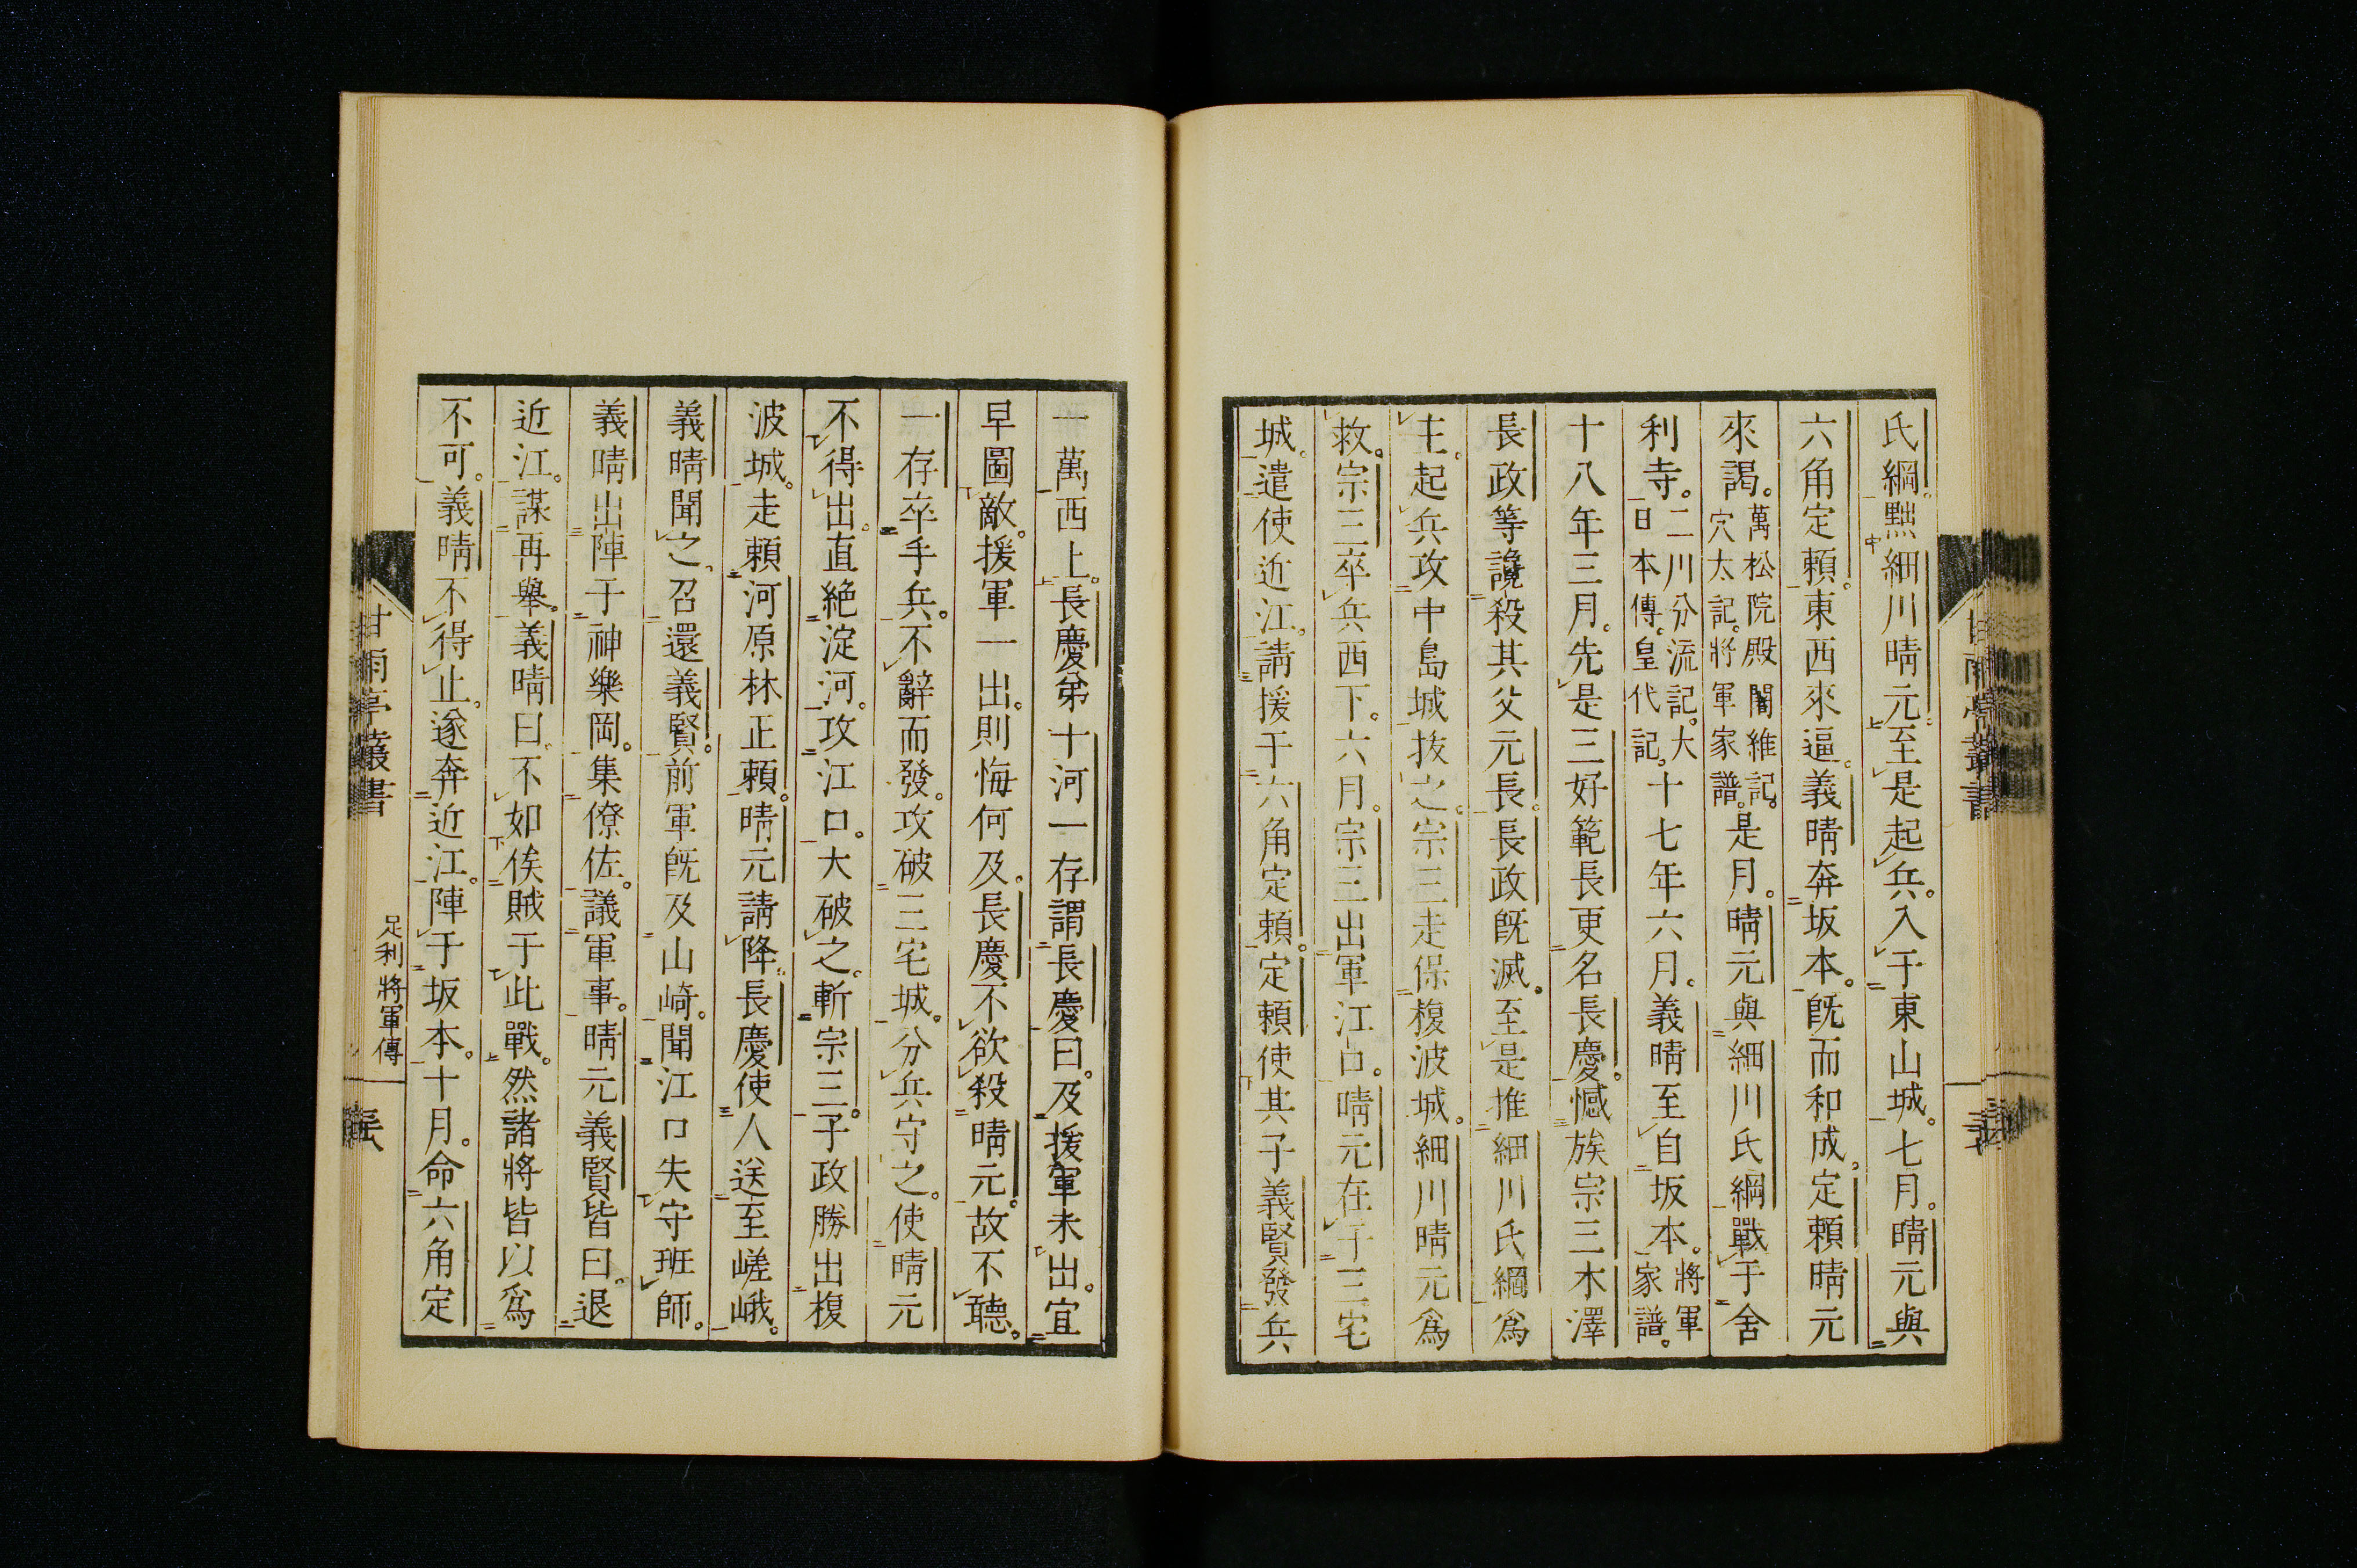 氏綱。黜細川晴元。至是起兵。入于東山城。七月。晴元與
六角定賴。東西來逼。義晴奔坂本。既而和成。定賴晴元
來謁。萬松院殿閽維記。穴太記。將軍家譜。是月。晴元與細川氏綱戰于舍
利寺。二川分流記。大日本傳。皇代記。十七年六月。義晴至自坂本。將軍家譜。
十八年三月。先是三好範長更名長慶。憾族宗三木澤
長政等讒殺其父元長。長政既滅。至是推細川氏綱爲
主。起兵攻中島城拔之。宗三走保榎波城。細川晴元爲
救。宗三卒兵西下。六月。宗三出軍江口。晴元在于三宅
城。遣使近江。請援于六角定賴。定賴使其子義賢發兵
一萬西上。長慶弟十河一存謂長慶曰。及援軍未出。宜
早圖敵。援軍一出。則悔何及。長慶不欲殺晴元。故不聽。
一存卒手兵。不辭而發。攻破三宅城。分兵守之。使晴元
不得出。直絶淀河。攻江口。大破之。斬宗三。子政勝出榎
波城。走賴河原林正賴。晴元請降。長慶使人送至嵯峨。
義晴聞之。召還義賢。前軍既及山崎。聞江口失守班師。
義晴出陣于神樂岡。集僚佐。議軍事。晴元義賢皆曰。退
近江。謀再舉。義晴曰。不如俟賊于此戰。然諸將皆以爲
不可。義晴不得止。遂奔近江。陣于坂本。十月。命六角定
甘雨亭叢書
足利將軍傳